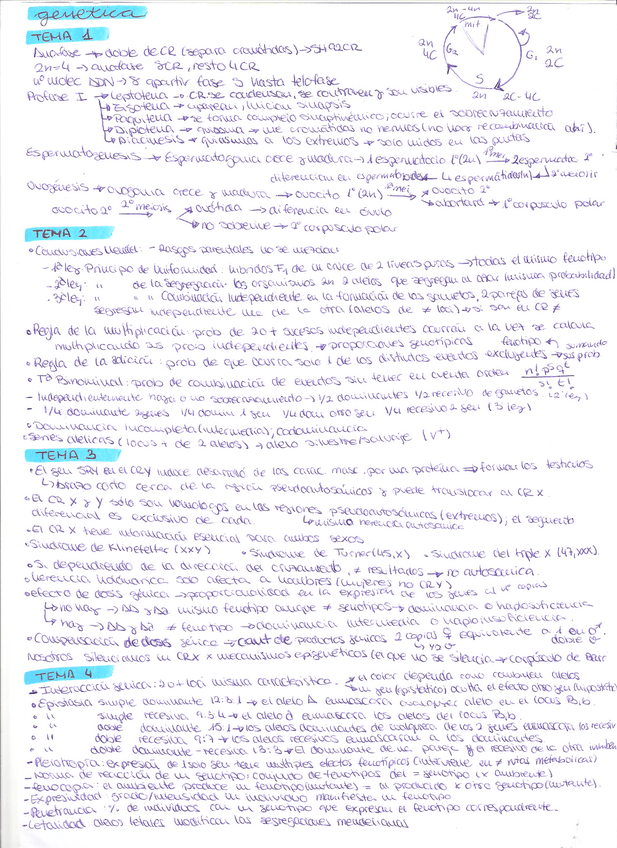 genética
TEMA 1
Anafase → doble de CR (separa cromátidas) →
2n=4 → anafase 8CR, resto 4CR
nº molec ADN → 8 a partir fase S hasta telofase
Profase I → Leptotena → CR se condensan, se contraen y son visibles
→ Zigotena → aparean, inician sinapsis
→ Paquitena → se forma complejo sinaptinémico, ocurre el sobrecruzamiento
→ Diplotena → quiasma → une cromátidas no hermanas (no hay recombinación ahí).
→ Diacinesis → quiasmas a los extremos → solo unidos en las puntas
mit
G1 2n 2C
S
2n 2C-4C
G2
2n 4C
Espermatogénesis → Espermatogonia crece y madura → 1 espermatocito 1º (2n) → 2 espermatoc 2º
diferencian en espermatozoides ← 4 espermátidas (n) ← 2ª meiosis
Ovogénesis → ovogonia crece y madura → ovocito 1º (2n) → ovocito 2º
ovocito 2º 2ª meiosis → ovótida → diferencia en óvulo
→ 1º corpúsculo polar
→ no sobrevive → 2º corpúsculo polar
TEMA 2
• Conclusiones Mendel: - Rasgos parentales no se mezclan
- 1ª ley: Principio de Uniformidad: híbridos F1 de un cruce de 2 líneas puras → todas el mismo fenotipo
- 2ª ley: " de la segregación: los organismos 2n 2 alelos que segregan al azar (misma probabilidad)
- 3ª ley: " " Combinación independiente en la formación de los gametos, 2 parejas de genes
segregan independiente una de la otra (alelos de ≠ loci) → si son en CR ≠
• Regla de la multiplicación: prob de 2 o + sucesos independientes ocurran a la vez se calcula
multiplicando sus prob independientes → proporciones genotípicas
• Regla de la adición: prob de que ocurra solo 1 de los distintos eventos excluyentes → sumando sus prob
• Tª Binominal: prob de combinación de eventos sin tener en cuenta orden n! p^s q^t / s! t!
- Independientemente haya o no sobrecruzamiento → 1/2 dominantes 1/2 recesivo de gametos (2ª ley)
- 1/4 dominante 2 genes 1/4 domin 1 gen 1/4 dom otro gen 1/4 recesivo 2 gen (3 ley)
• Dominancia incompleta (intermedia); codominancia
• Series alélicas (locus + de 2 alelos) → alelo silvestre/salvaje (v+)
TEMA 3
• El gen SRY en el CRY induce desarrollo de las carac masc. por una proteína → forman los testículos
↳ brazo corto cerca de la región pseudoautosómicas y puede translocar al CR X.
• El CR X y Y sólo son homólogos en las regiones pseudoautosómicas (extremos), el segmento
diferencial es exclusivo de cada. ↳ misma herencia autosómica
• El CR X tiene información esencial para ambos sexos
• Síndrome de Klinefelter (XXY) • Síndrome de Turner (45,X) • Síndrome del triple X (47,XXX).
• Si dependiendo de la dirección del cruzamiento, ≠ resultados → no autosómica.
• Herencia holándrica solo afecta a hombres (mujeres no CR Y)
• Efecto de dosis génica → proporcionalidad en la expresión de los genes al nº copias
↳ no hay → AA y Aa mismo fenotipo aunque ≠ genotipos → dominancia o haplosuficiencia
↳ hay → AA y Aa ≠ fenotipo → dominancia intermedia o haploinsuficiencia.
• Compensación de dosis génica → cant de productos génicos 2 copias ♀ equivalente a 1 en ♂.
Nosotros silenciamos un CR X x mecanismos epigenéticos (el que no se silencia → corpúsculo de Barr
TEMA 4
- Interacción génica: 2 o + loci misma característica. → un color dependa como combinen alelos
→ un gen (epistático) oculta el efecto otro gen (hipostático)
• Epistasia simple dominante 12:3:1 → el alelo A enmascara cualquier alelo en el locus B,b.
• " simple recesiva 9:3:4 → el alelo a enmascara los alelos del locus B,b.
• " doble dominante 15:1 → los alelos dominantes de cualquiera de los 2 genes enmascara los recesiv
• " doble recesiva 9:7 → los alelos recesivos enmascaran los dominantes
• " doble dominante-recesiva 13:3 → El dominante de una pareja y el recesivo de la otra inhiben
- Pleiotropía: expresión de 1 solo gen tiene múltiples efectos fenotípicos (interviene en ≠ rutas metabólicas)
- Norma de reacción de un genotipo: conjunto de fenotipos del = genotipo (x ambiente)
- Fenocopia: el ambiente produce un fenotipo (mutante) = al producido x otro genotipo (mutante).
- Expresividad: grado/intensidad un individuo manifieste un fenotipo
- Penetrancia: % de individuos con un genotipo que expresan el fenotipo correspondiente.
- Letalidad: alelos letales modifican las segregaciones mendelianas